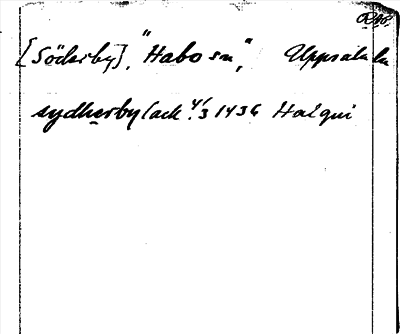 [Söderby]. "Habo sn", Uppsala ln
sydherby (ack 4/3 1436 Haiqui